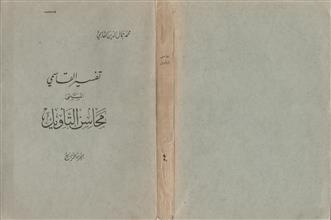 محمد جمال الدين القاسمي
تفسير القاسمي
المسمى
محاسن التأويل
الجزء الرابع
محاسن
التأويل
٤